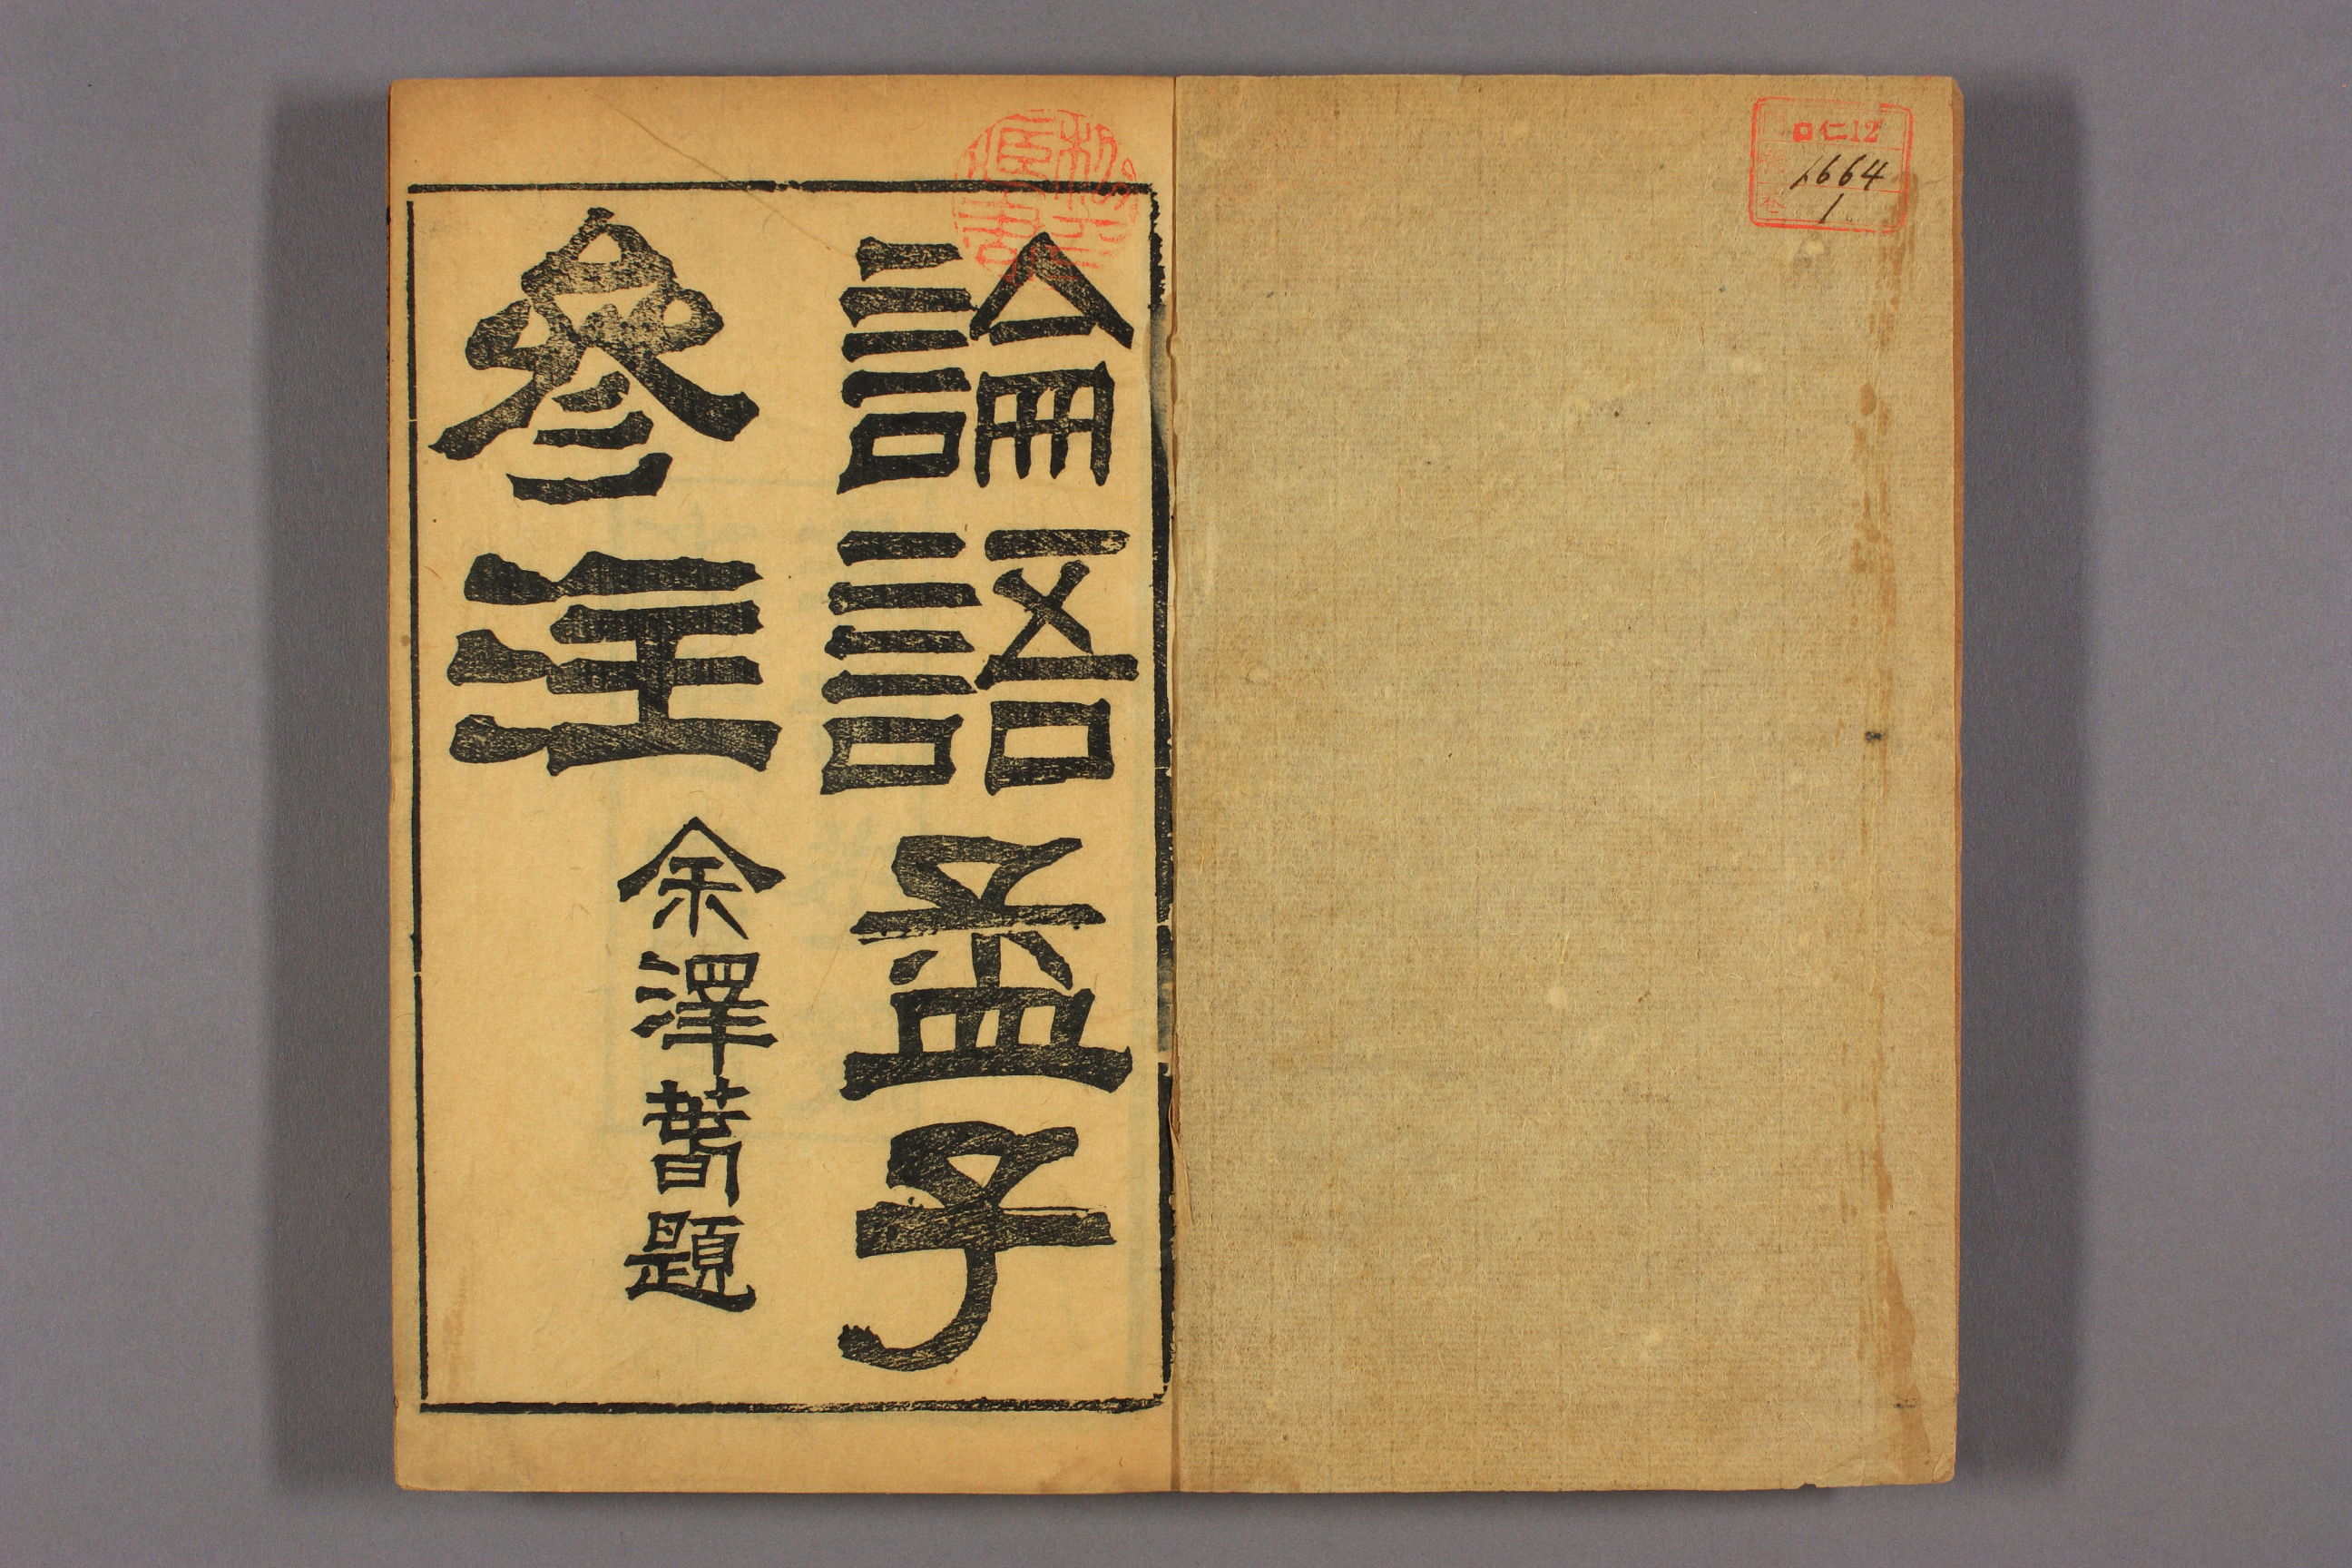 ロ仁12
1664
1
論語孟子
參注
余澤春題